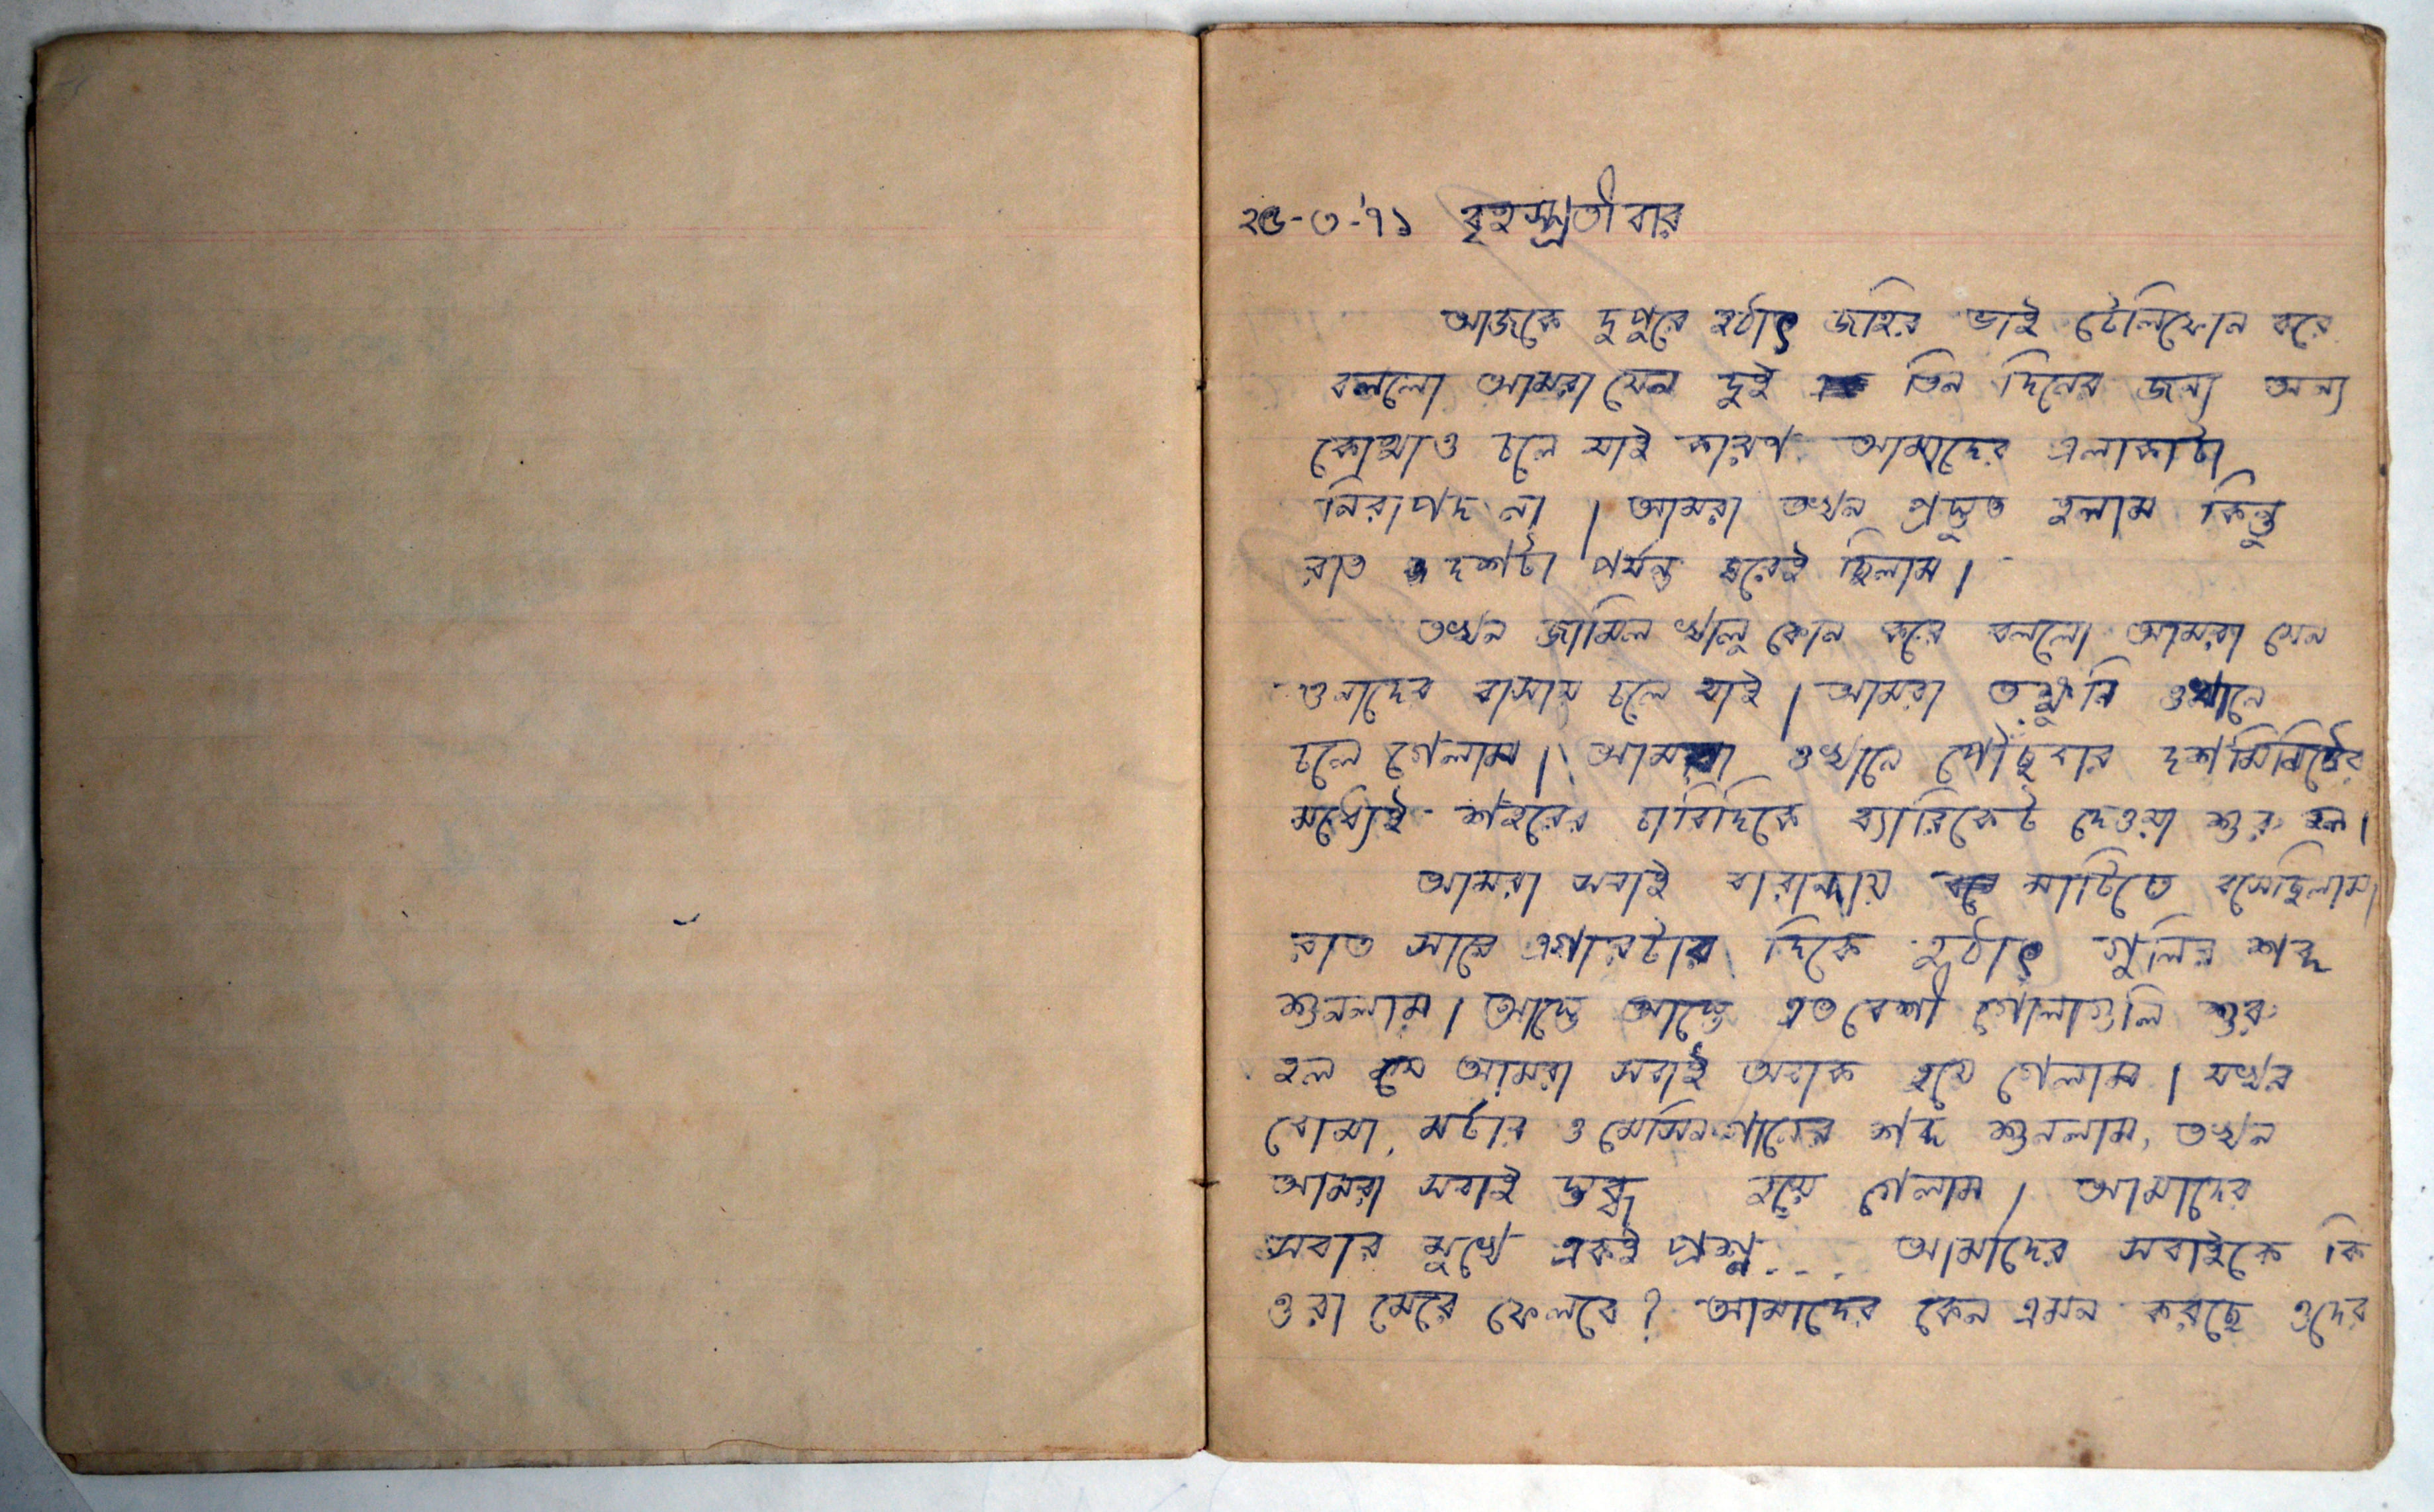 ২৫-৩-'৭১ বৃহস্প্রতীবার
আজকে দুপুরে হঠাৎ জহির ভাই টেলিফোন করে
বললো আমরা যেন দুই তিন দিনের জন্য অন্য
কোথাও চলে যাই কারণ আমাদের এলাকাটা
নিরাপদ না। আমরা তখন প্রস্তুত হলাম কিন্তু
রাত দশটা পর্যন্ত ঘরেই ছিলাম।
তখন জামিল খালু ফোন করে বললো আমরা যেন
ওনাদের বাসায় চলে যাই। আমরা তক্ষুনি ওখানে
চলে গেলাম। আমরা ওখানে পৌঁছুবার দশমিনিটের
মধ্যেই শহরের চারিদিকে ব্যারিকেট দেওয়া শুরু হল।
আমরা সবাই বারান্দায় মাটিতে বসেছিলাম।
রাত সারে এগারটার দিকে হঠাৎ গুলির শব্দ
শুনলাম। আস্তে আস্তে এত বেশী গোলাগুলি শুরু
হল যে আমরা সবাই অবাক হয়ে গেলাম। যখন
বোমা, মর্টার ও মেসিনগানের শব্দ শুনলাম, তখন
আমরা সবাই স্তব্ধ হয়ে গেলাম। আমাদের
সবার মুখে একই প্রশ্ন... আমাদের সবাইকে কি
ওরা মেরে ফেলবে? আমাদের কেন এমন করছে ওদের